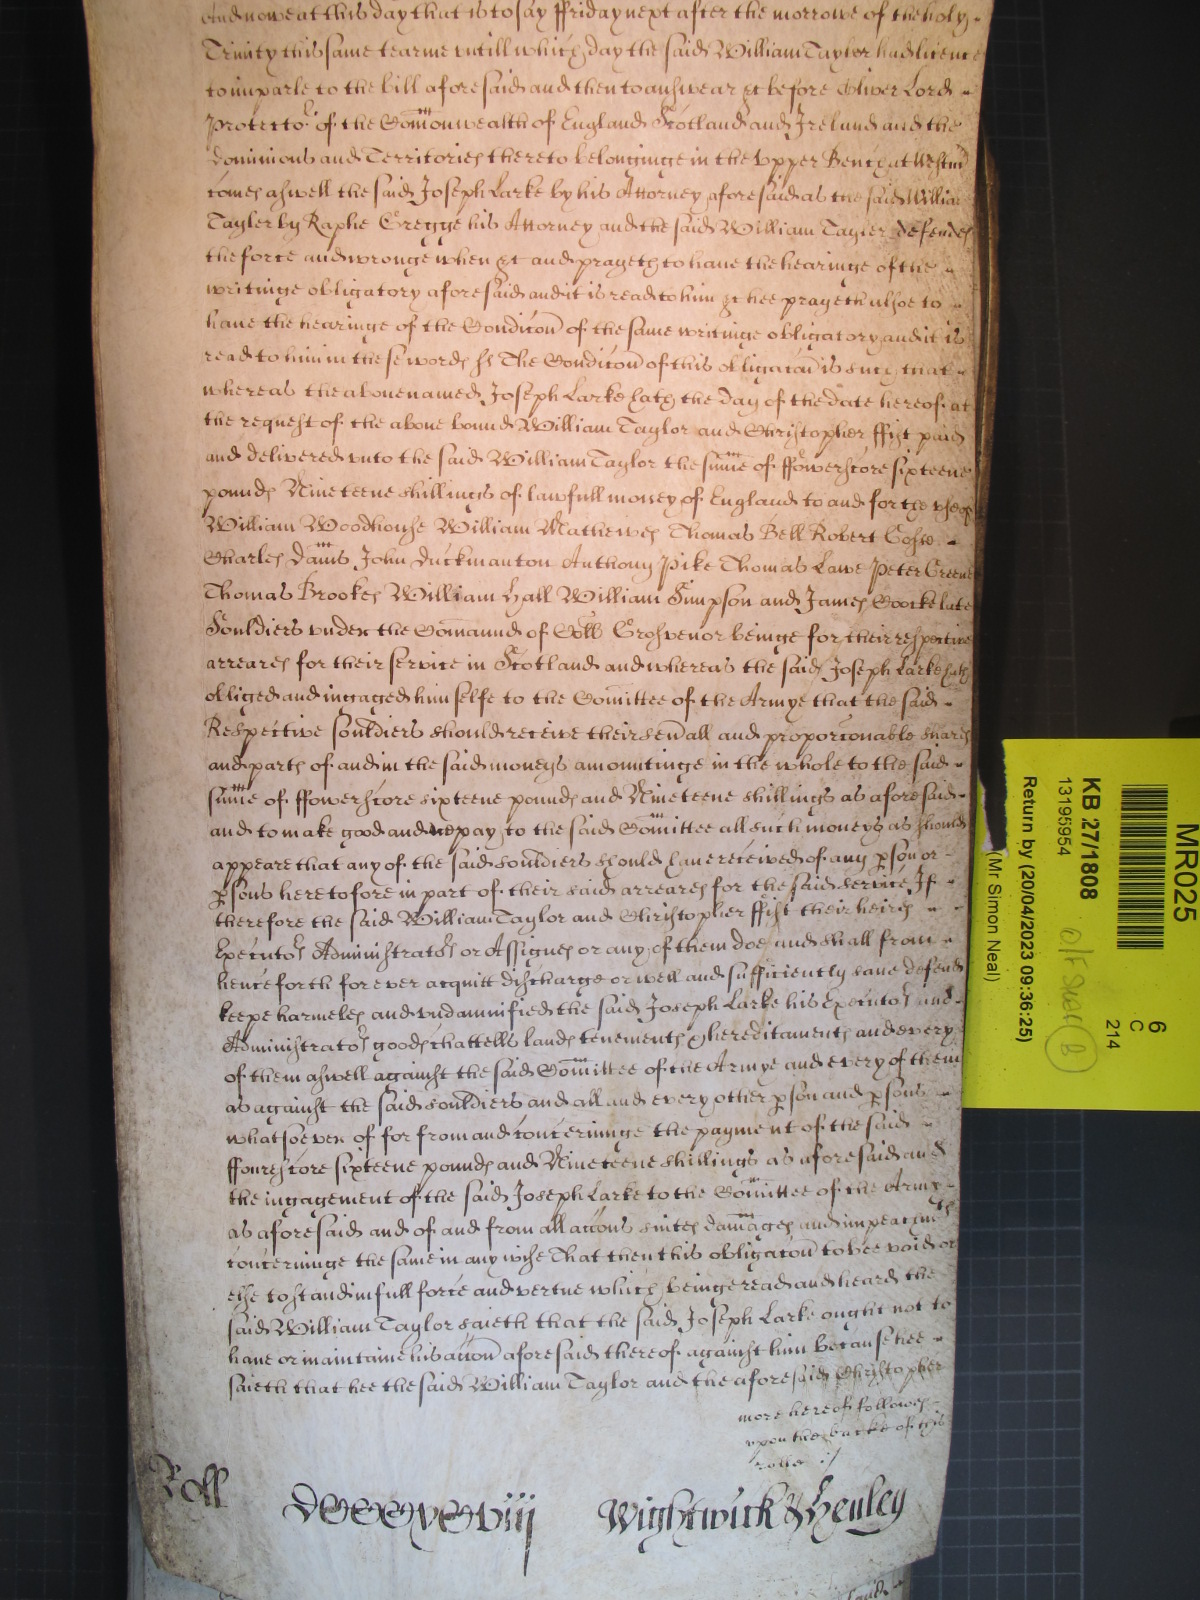 And nowe at this day that is to say ffriday next after the morrowe of the holy
Trinity this same tearme untill which day the said William Taylor had licence
to imparle to the bill aforesaid and then to answear &c before Oliver Lord
Protector of the Comonwealth of England Scotland and Ireland and the
dominions and Territories thereto belonginge in the Upper Bench at Westmr
comes aswell the said Joseph Larke by his Attorney aforesaid as the said William
Tayler by Raphe Gregge his Attorney and the said William Tayler defendes
the force and wronge when &c and prayeth to have the hearinge of the
writinge obligatory aforesaid and it is read to him &c hee prayeth alsoe to
have the hearinge of the Condicon of the same writinge obligatory and it is
read to him in these wordes ss The Condicon of this obligacon is such that
whereas the abovenamed Joseph Larke hath the day of the date hereof at
the request of the above bound William Taylor and Christopher ffist paid
and delivered unto the said William Taylor the sume of ffowerscore sixteene
pounds Nineteene shillings of lawfull money of England to and for the use of
William Woodhouse William Mathewes Thomas Bell Robert
Charles Davis John Duckmanton Anthony Pike Thomas Lawe Peter Greene
Thomas Brookes William Hall William Simpson and James Coocke late
Souldiers under the Comaund of Coll Grosvenor beinge for their respective
arreares for their service in Scotland and whereas the said Joseph Larke hath
obliged and ingaged himselfe to the Comittee of the Armye that the said
Respective souldiers should receive their sevall and proporconable shares
and partes of and in the said moneys amountinge in the whole to the said
sume of ffowerscore sixteene pounds and Nineteene shillings as aforesaid
and to make good and repay to the said Comittee all such moneys as should
appeare that any of the said souldiers should have received of any pson or
psons heretofore in part of their said arreares for the said service If
therefore the said William Taylor and Christopher ffist their heires
Executors Administrators or Assignes or any of them doe and shall from
henceforth for ever acquitt discharge or well and sufficiently save defend
keepe harmeles and undamnified the said Joseph Larke his Executors and
Administrators goods chattells landes tenements & hereditaments and every
of them aswell against the said Comittee of the Armye and every of them
as against the said souldiers and all and every other pson and psons
whatsoever of for from and concerninge the payment of the said
ffourescore sixteene pounds and Nineteene shillings as aforesaid and
the ingagement of the said Joseph Larke to the Comittee of the Armye
as aforesaid and of and from all accons suites damages and impeachmts
concerninge the same in any wise That then this obligacon to bee void or
else to stand in full force and vertue which beinge read and heard the
said William Taylor saieth that the said Joseph Larke ought not to
have or maintaine his accon aforesaid thereof against him because hee
saieth that hee the said William Taylor and the aforesaid Christopher
more hereof followes
upon the backe of this
rolle :/
Roll DCCCCxCviij Wightwick & Henley
MR025
6
C
214
KB 27/1808
13195954
Return by (20/04/2023 09:36:25)
(Mr Simon Neal)